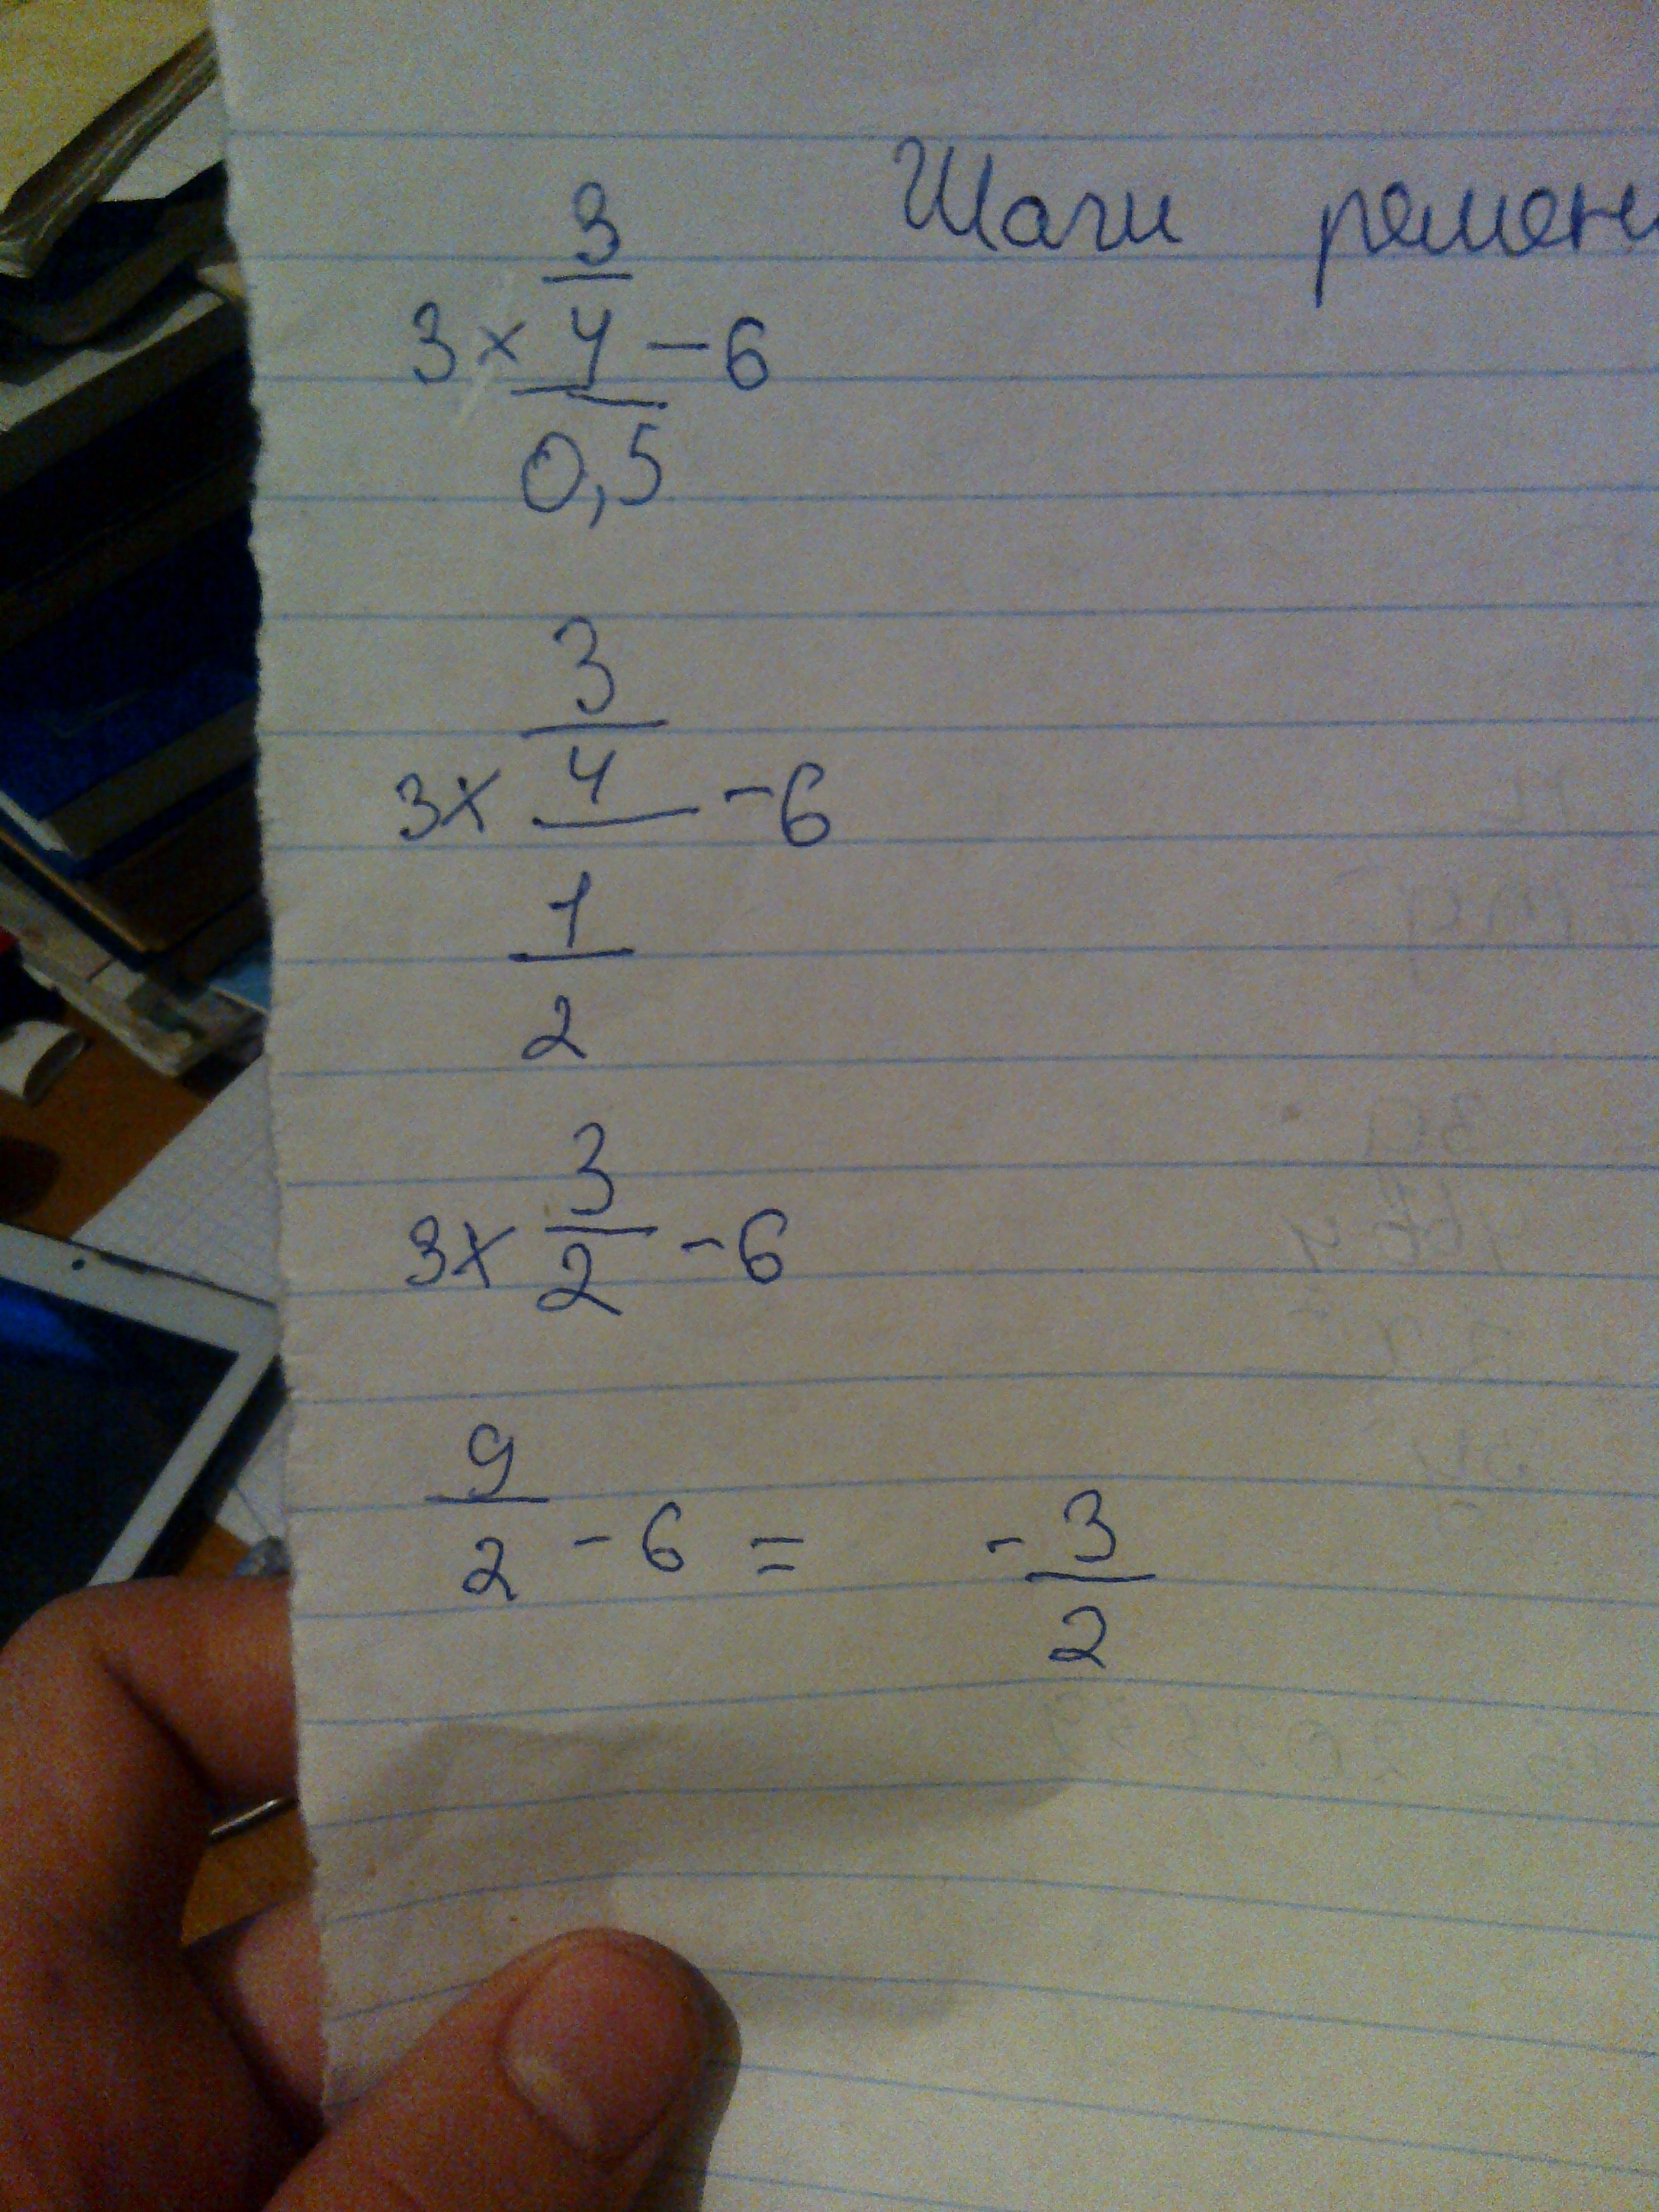 Шаги решени
3
3 × 4 - 6
0,5
3
3 × 4 - 6
1
2
3
3 × 2 - 6
9
2 - 6 = - 3
2